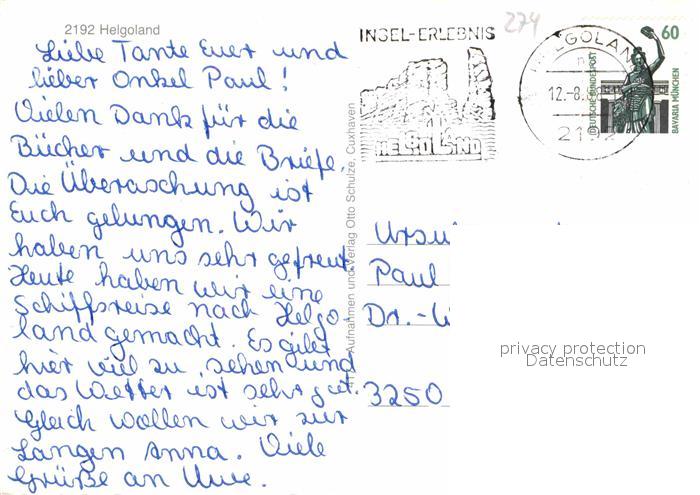 2192 Helgoland
Liebe Tante Euer und
lieber Onkel Paul!
Vielen Dank für die
Bücher und die Briefe.
Die Überaschung ist
Euch gelungen. Wir
haben uns sehr gefreut
Heute haben wir eine
Schiffsreise nach Helgo
land gemacht. Es gibt
hier viel zu sehen und
das Wetter ist sehr gut.
Gleich wollen wir zur
Langen Anna. Viele
Grüße an Uwe.
Aufnahmen und Verlag Otto Schulze, Cuxhaven
INSEL-ERLEBNIS
HELGOLAND
274
HELGOLAN
12.-8.
219
60
DEUTSCHE BUNDESPOST
BAVARIA MÜNCHEN
Ursu
Paul
Dr.-
3250
privacy protection
Datenschutz